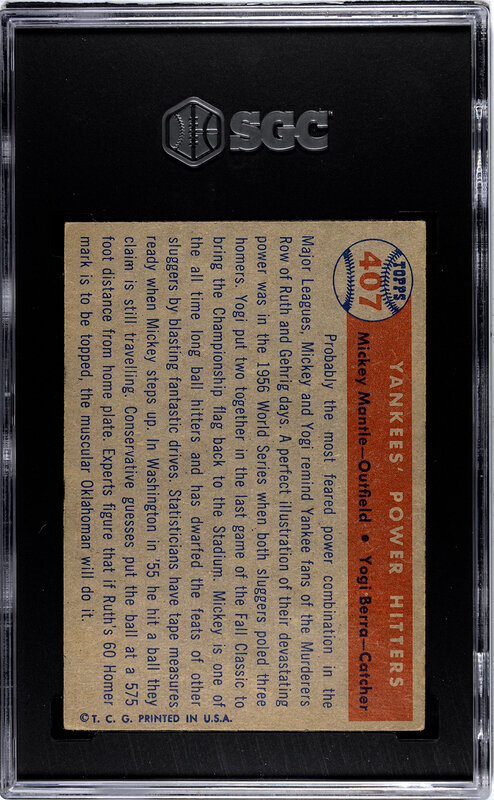 SGC
TOPPS
407
YANKEES' POWER HITTERS
Mickey Mantle—Outfield • Yogi Berra—Catcher
Probably the most feared power combination in the
Major Leagues, Mickey and Yogi remind Yankee fans of the Murderers
Row of Ruth and Gehrig days. A perfect illustration of their devastating
power was in the 1956 World Series when both sluggers poled three
homers. Yogi put two together in the last game of the Fall Classic to
bring the Championship flag back to the Stadium. Mickey is one of
the all time long ball hitters and has dwarfed the feats of other
sluggers by blasting fantastic drives. Statisticians have tape measures
ready when Mickey steps up. In Washington in '55 he hit a ball they
claim is still travelling. Conservative guesses put the ball at a 575
foot distance from home plate. Experts figure that if Ruth's 60 Homer
mark is to be topped, the muscular Oklahoman will do it.
© T. C. G. PRINTED IN U.S.A.